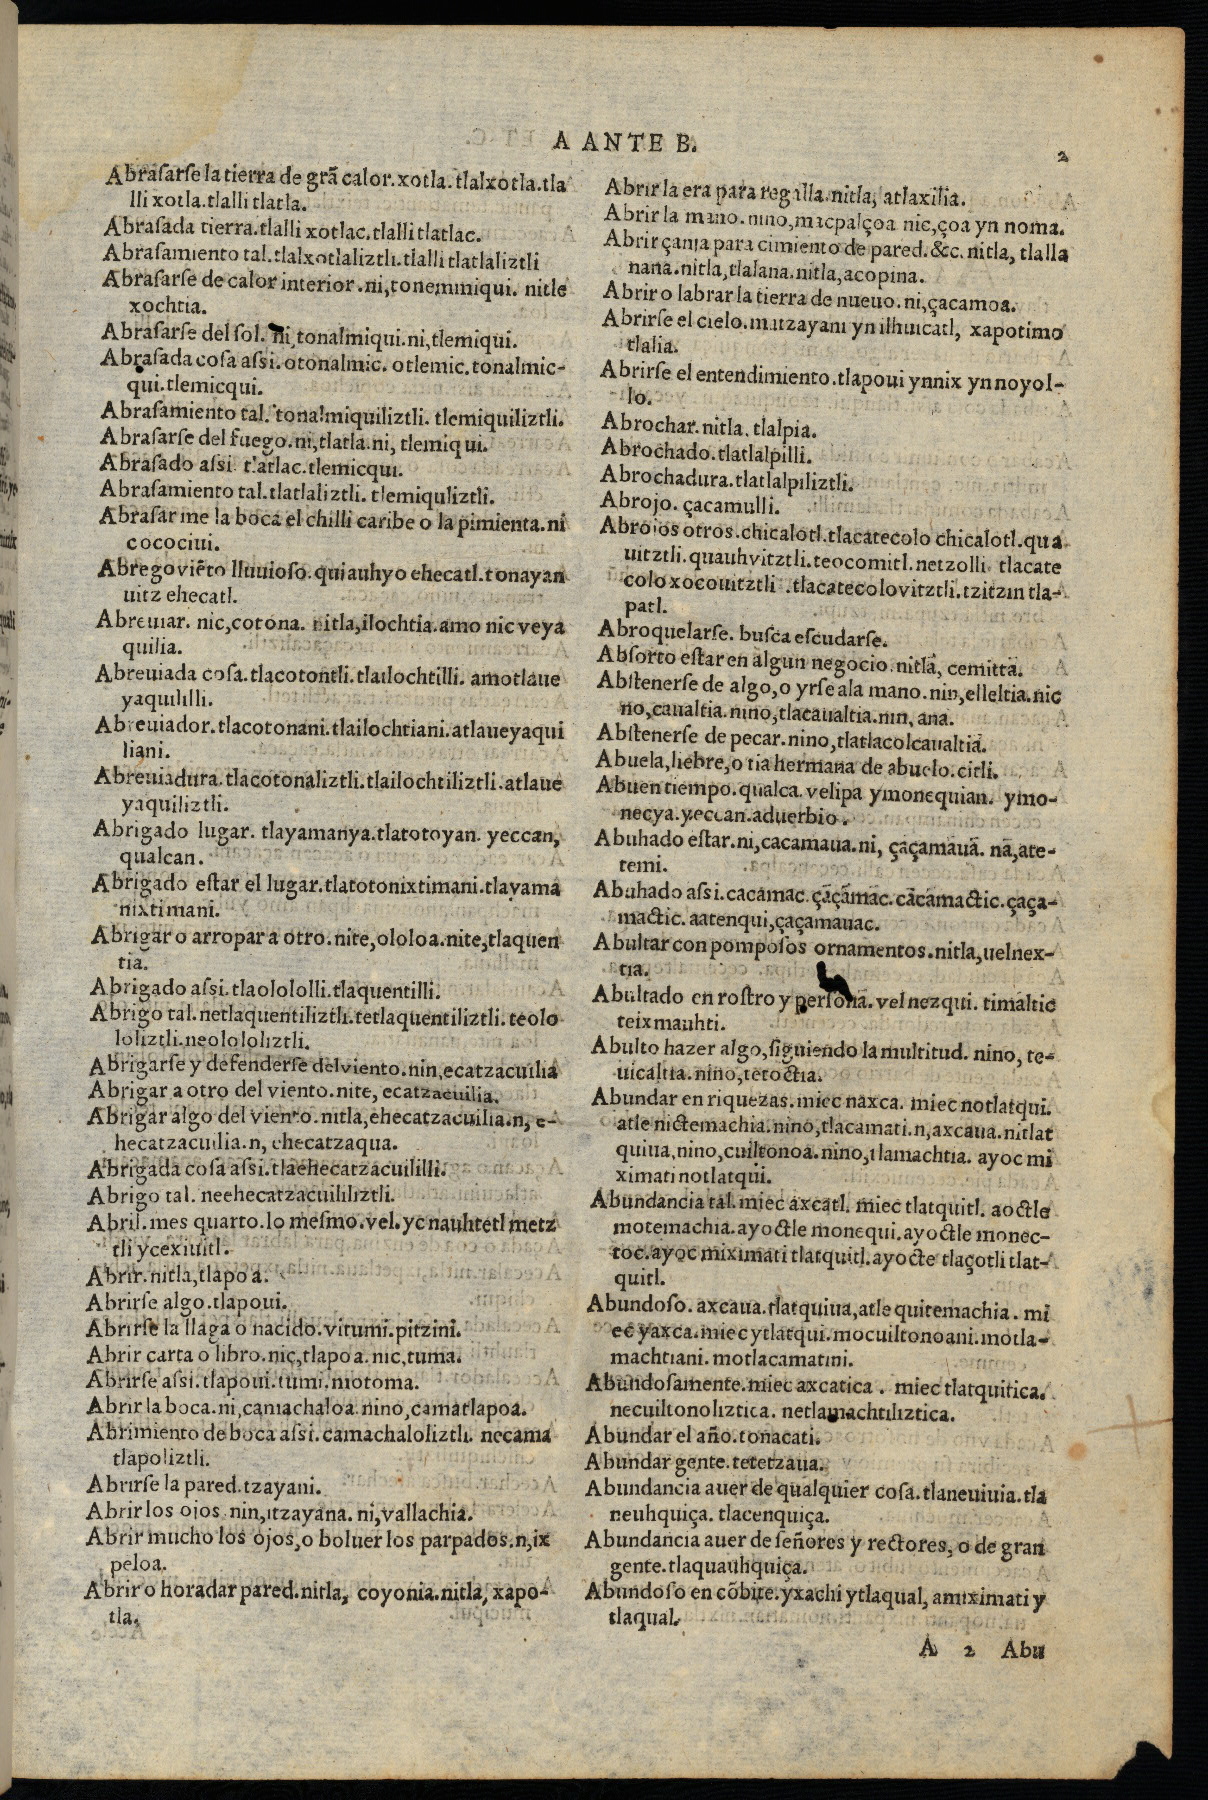 A ANTE B.
2
Abrasarse la tierra de grã calor. xotla. tlalxotla. tla
lli xotla. tlalli tlatla.
Abrasada tierra. tlalli xotlac. tlalli tlatlac.
Abrasamiento tal. tlalxotlaliztli. tlalli tlatlaliztli
Abrasarse de calor interior. ni, tonemmiqui. nitle
xochtia.
Abrasarse del sol. ni, tonalmiqui. ni, tlemiqui.
Abrasada cosa assi. otonalmic. otlemic. tonalmic-
qui. tlemicqui.
Abrasamiento tal. tonalmiquiliztli. tlemiquiliztli.
Abrasarse del fuego. ni, tlatla. ni, tlemiqui.
Abrasado assi. tlatlac. tlemicqui.
Abrasamiento tal. tlatlaliztli. tlemiquliztli.
Abrasar me la boca el chilli caribe o la pimienta. ni
cocociui.
Abrego viẽto lluuioso. quiauhyo ehecatl. tonayan
uitz ehecatl.
Abreuiar. nic, cotona. nitla, ilochtia. amo nic veya
quilia.
Abreuiada cosa. tlacotontli. tlailochtilli. amotlaue
yaquililli.
Abreuiador. tlacotonani. tlailochtiani. atlaueyaqui
liani.
Abreuiadura. tlacotonaliztli. tlailochtiliztli. atlaue
yaquiliztli.
Abrigado lugar. tlayamanya. tlatotoyan. yeccan,
qualcan.
Abrigado estar el lugar. tlatotonixtimani. tlayama
nixtimani.
Abrigar o arropar a otro. nite, ololoa. nite, tlaquen
tia.
Abrigado assi. tlaolololli. tlaquentilli.
Abrigo tal. netlaquentiliztli. tetlaquentiliztli. teolo
loliztli. neolololiztli.
Abrigarse y defenderse del viento. nin, ecatzacuilia
Abrigar a otro del viento. nite, ecatzacuilia.
Abrigar algo del viento. nitla, ehecatzacuilia. n, e-
hecatzacuilia. n, ehecatzaqua.
Abrigada cosa assi. tlaehecatzacuililli.
Abrigo tal. neehecatzacuililiztli.
Abril. mes quarto. lo mesmo. vel. yc nauhtetl metz
tli ycexiuitl.
Abrir. nitla, tlapoa.
Abrirse algo. tlapoui.
Abrirse la llaga o nacido. vitumi. pitzini.
Abrir carta o libro. nic, tlapoa. nic, tuma.
Abrirse assi. tlapoui. tumi. motoma.
Abrir la boca. ni, camachaloa. nino, camatlapoa.
Abrimiento de boca assi. camachaloliztli. necama
tlapoliztli.
Abrirse la pared. tzayani.
Abrir los ojos. nin, itzayana. ni, vallachia.
Abrir mucho los ojos, o boluer los parpados. n, ix
peloa.
Abrir o horadar pared. nitla, coyonia. nitla, xapo-
tla.
Abrir la era para regalla. nitla, atlaxilia.
Abrir la mano. nino, macpalçoa nic, çoa yn noma.
Abrir çanja para cimiento de pared. &c. nitla, tlalla
nana. nitla, tlalana. nitla, acopina.
Abrir o labrar la tierra de nueuo. ni, çacamoa.
Abrirse el cielo. mitzayani yn ilhuicatl, xapotimo
tlalia.
Abrirse el entendimiento. tlapoui ynnix ynnoyol-
lo.
Abrochar. nitla. tlalpia.
Abrochado. tlatlalpilli.
Abrochadura. tlatlalpiliztli.
Abrojo. çacamulli.
Abrojos otros. chicalotl. tlacatecolo chicalotl. qua
uitztli. quauhvitztli. teocomitl. netzolli tlacate
colo xocouitztli. tlacatecolovitztli. tzitzin tla-
patl.
Abroquelarse. busca escudarse.
Absorto estar en algun negocio. nitlã, cemittã.
Abstenerse de algo, o yrse ala mano. nin, elleltia. nic
no, caualtia. nino, tlacaualtia. nin, ana.
Abstenerse de pecar. nino, tlatlacolcaualtia.
Abuela, liebre, o tia hermana de abuelo. citli.
Abuen tiempo. qualca. velipa ymonequian. ymo-
necya. yeccan. aduerbio.
Abuhado estar. ni, cacamaua. ni, çaçamauã. nã, ate-
temi.
Abuhado assi. cacamac. çãçãmac. cãcamactic. çaça-
mactic. aatenqui, çaçamauac.
Abultar con pomposos ornamentos. nitla, uelnex-
tia.
Abultado en rostro y personã. vel nezqui. timaltic
teixmauhti.
Abulto hazer algo, siguiendo la multitud. nino, te-
uicaltia. nino, tetoctia.
Abundar en riquezas. miec naxca. miec notlatqui.
atle nictemachia. nino, tlacamati. n, axcaua. nitlat
quiua, nino, cuiltonoa. nino, tlamachtia. ayoc mi
ximati notlatqui.
Abundancia tal. miec axcatl. miec tlatquitl. aoctle
motemachia. ayoctle monequi. ayoctle monec-
toc. ayoc miximati tlatquitl. ayocte tlaçotli tlat-
quitl.
Abundoso. axcaua. tlatquiua, atle quitemachia. mi
ec yaxca. miec ytlatqui. mocuiltonoani. motla-
machtiani. motlacamatini.
Abundosamente. miec axcatica. miec tlatquitica.
necuiltonoliztica. netlamachtiliztica.
Abundar el año. tonacati.
Abundar gente. tetetzaua.
Abundancia auer de qualquier cosa. tlaneuiuia. tla
neuhquiça. tlacenquiça.
Abundancia auer de señores y rectores, o de gran
gente. tlaquauhquiça.
Abundoso en cõbite. yxachi ytlaqual, amiximati y
tlaqual.
A 2 Abu